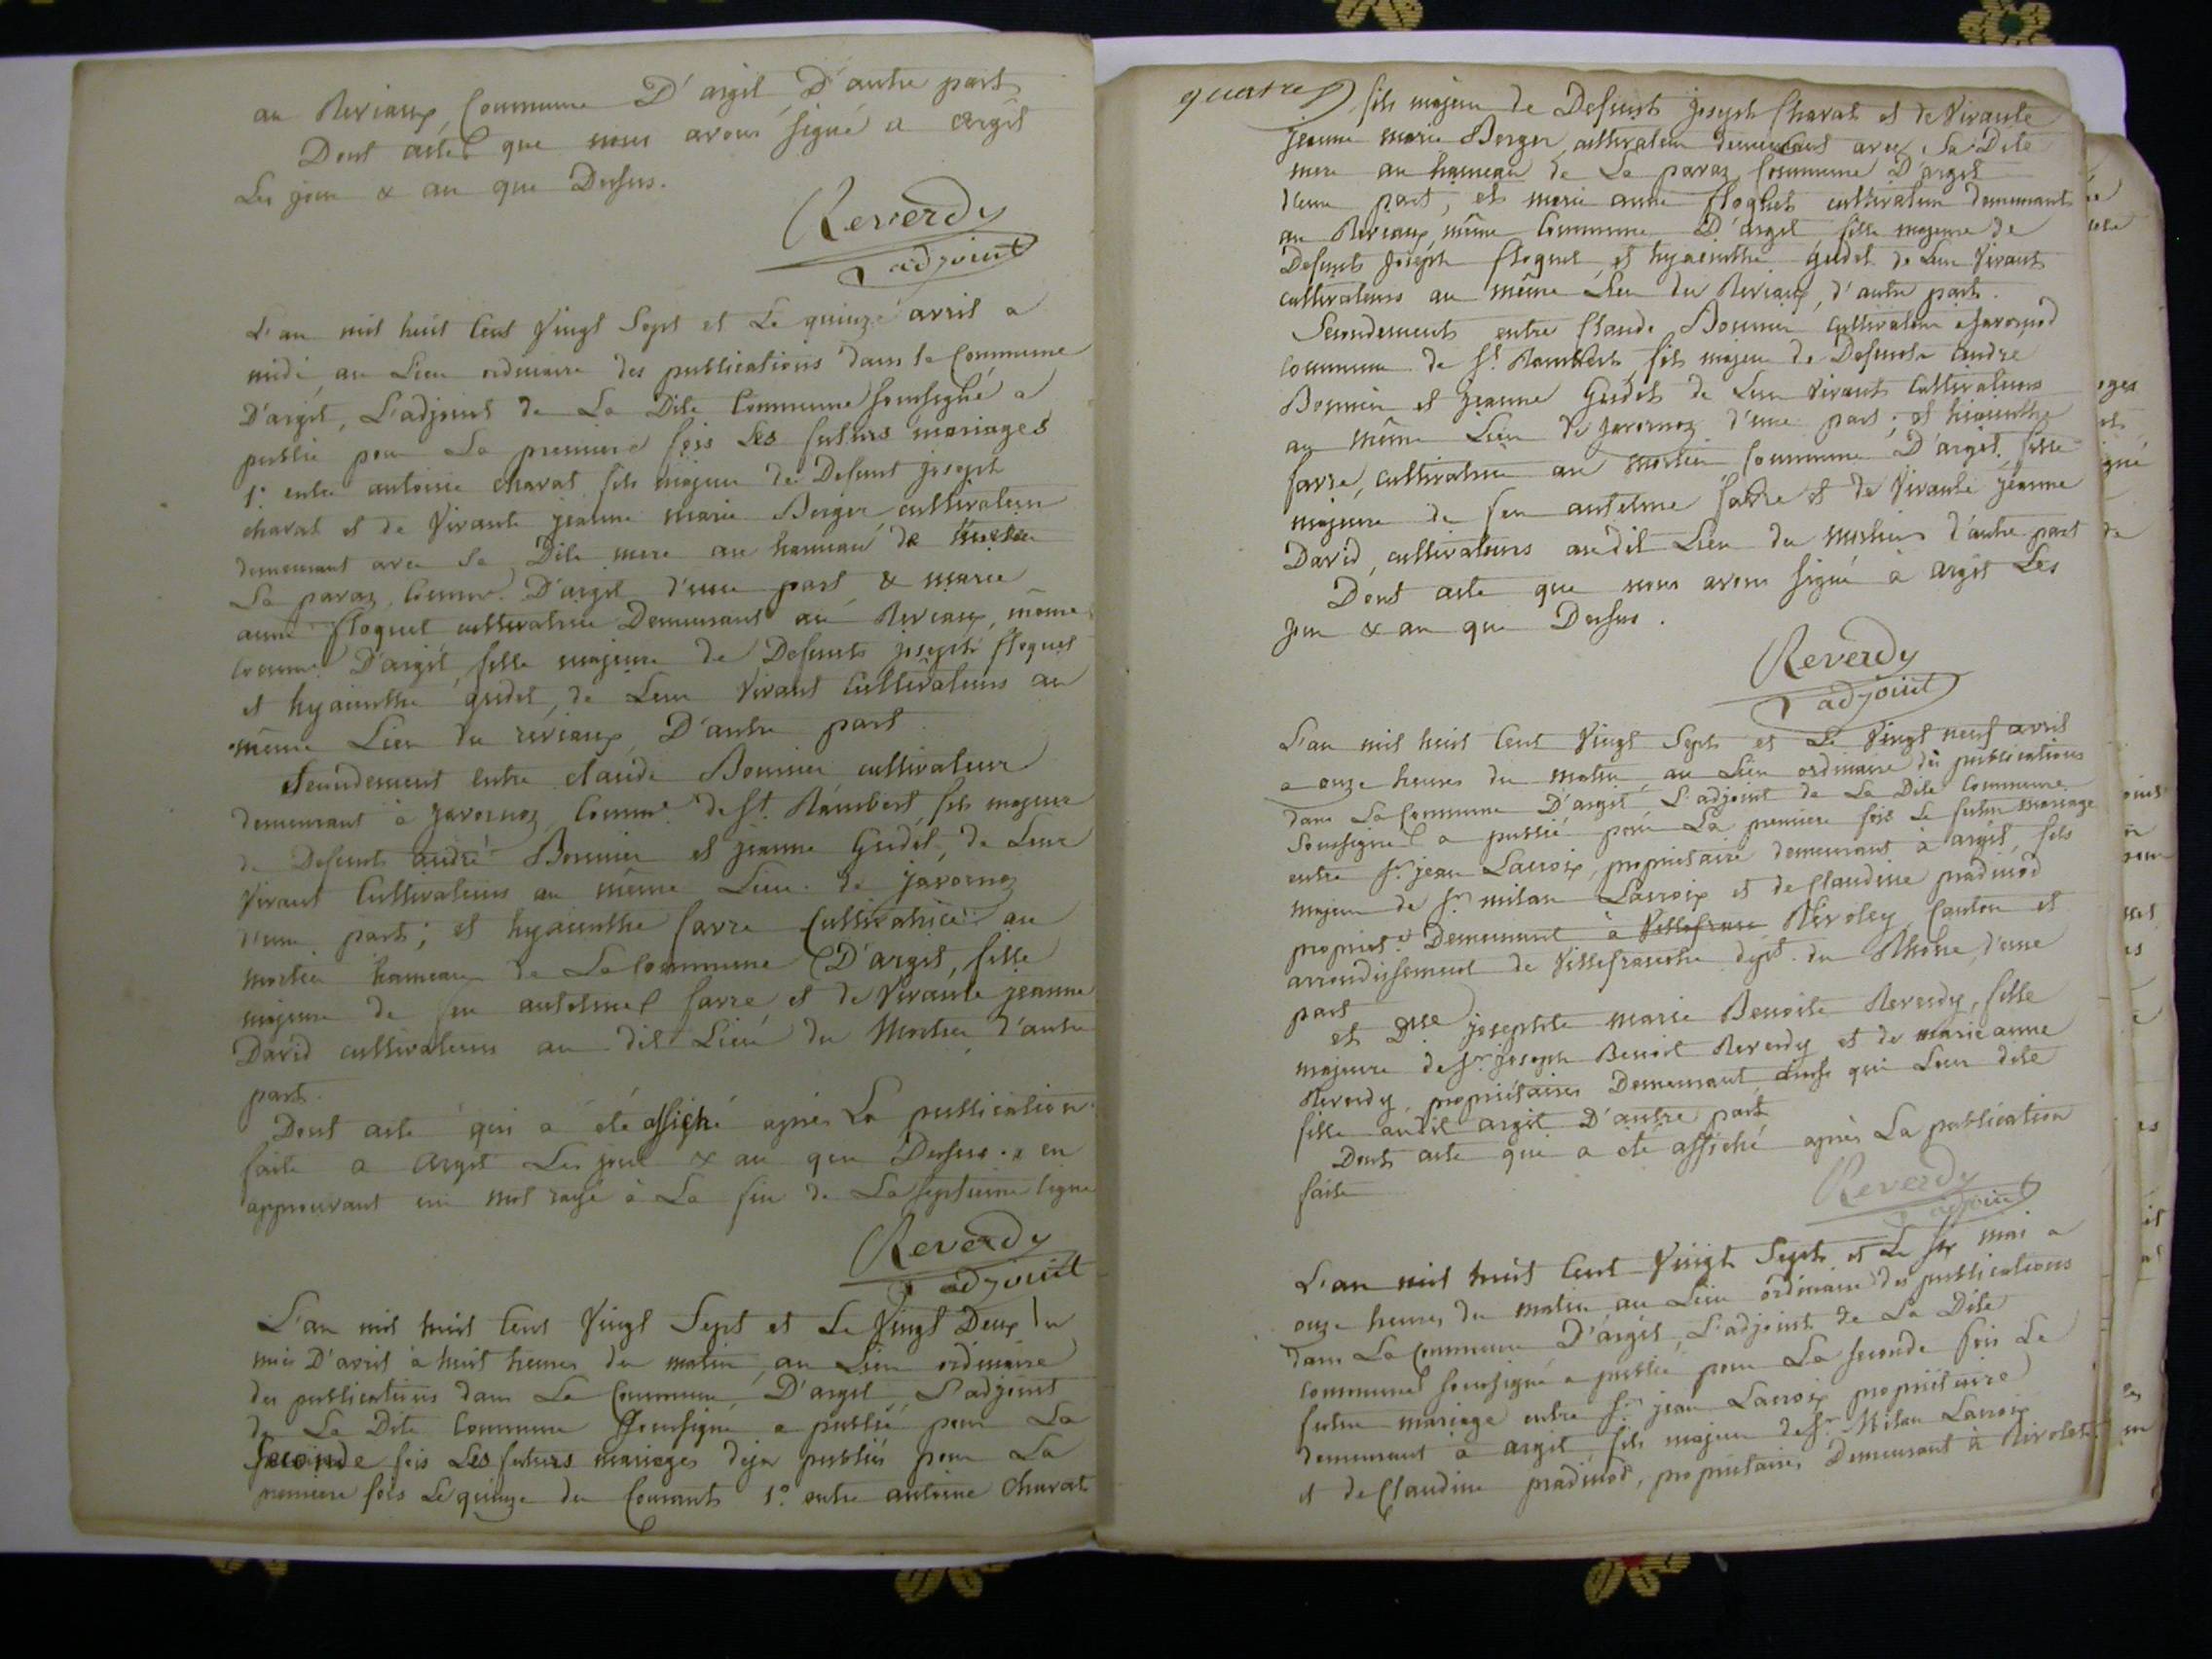 au Reviaux, Commune D'argit D'autre part
Dont acte que nous avons signé a argit
Les jour & an que Dessus.
Reverdy
adjoint
L'an mil huit Cent Vingt Sept et Le quinze avril a
midi au Lieu ordinaire des publications dans la Commune
D'argit, L'adjoint de La Dite Commune soussigné a
publié pour La premiere fois Les futurs mariages
1° entre antoine charat fils majeur de Defunt joseph
charat et de Vivante jeanne marie Berger cultivateur
demeurant avec Sa Dite mere au hameau de
La paraz, Comme. D'argit d'une part & marie
anne floquet cultivatrice Demeurant au Reviaux, même
Comme. D'argit, fille majeure de Defunts joseph floquet
et hyacinthe gudet, de Leur Vivant Cultivateurs au
même Lieu du réviaux, D'autre part
Secondement entre claude Bonnier cultivateur
demeurant à javornoz Comme. de St. Rambert, fils majeur
de Defunts andré Bonnier et jeanne Gudet, de Leur
Vivant Cultivateurs au même Lieu de javornoz
d'une part; et hyacinthe favre Cultivatrice au
mortier hameau de La Commune D'argit, fille
majeure de feu antelme favre et de Vivante jeanne
David cultivateurs au dit Lieu du Mortier d'autre
part.
Dont acte qui a été affiché après La publication
faite a argit Les jour & an que Dessus. en
approuvant un mot rayé à La fin de La septieme ligne
Reverdy
adjoint
L'an mil huit Cent Vingt Sept et Le Vingt Deux du
mois D'avril à huit heures du matin au Lieu ordinaire
des publications dans La Commune D'argit, L'adjoint
de La Dite Commune soussigné a publié pour La
seconde fois Les futurs mariages deja publiés pour La
premiere fois Le quinze du Courant 1° entre antoine Charat
quatre
fils majeur de Defunt joseph Charat et de Vivante
jeanne marie Berger, cultivateur demeurant avec Sa Dite
mere au hameau de La paraz Commune D'argit
d'une part, et marie anne floquet cultivateur demeurant
au Reviaux, même Commune D'argit fille majeure de
Defunts joseph floquet et hyacinthe gudet de Leur Vivant
cultivateurs au même Lieu du Reviaux, d'autre part.
Secondement entre Claude Bonnier Cultivateur a javornod
commune de St. Rambert, fils majeur de Defunts andre
Bonnier et jeanne Gudet de Leur Vivant Cultivateurs
au même Lieu de javornoz d'une part; et hiacinthe
favre, cultivatrice au mortier Commune D'argit, fille
majeure de feu antelme favre et de Vivante jeanne
David, cultivateurs audit Lieu du mortier d'autre part
Dont acte que nous avons signé à argit Les
jour & an que Dessus.
Reverdy
adjoint
L'an mil huit Cent Vingt Sept et Le Vingt neuf avril
a onze heures du matin au Lieu ordinaire des publications
dans La Commune D'argit, L'adjoint de La Dite Commune
Soussigné a publié pour La premiere fois Le futur mariage
entre Sr. jean Lacroix, propriétaire demeurant à argit, fils
majeur de Sr. milan Lacroix et de Claudine pradinod
propriet.e Demeurant à Villefran Riroley, Canton et
arrondissement de Villefranche dept. du Rhône, d'une
part
et Dlle josephte marie Benoite Reverdy, fille
majeure de Sr. joseph Benoit Reverdy et de marie anne
Reverdy, propriétaires Demeurant, ainsi que Leur dite
fille audit argit D'autre part
Dont acte qui a été affiché après La publication
faite
Reverdy
adjoint
L'an mil huit Cent Vingt Sept et Le six mai a
onze heures du matin au Lieu ordinaire des publications
dans La Commune D'argit, L'adjoint de La Dite
Commune soussigné a publié pour La seconde fois Le
futur mariage entre Sr. jean Lacroix propriétaire
demeurant à argit, fils majeur de Sr. Milan Lacroix
et de Claudine pradinod, propriétaires Demeurant à Rirolet